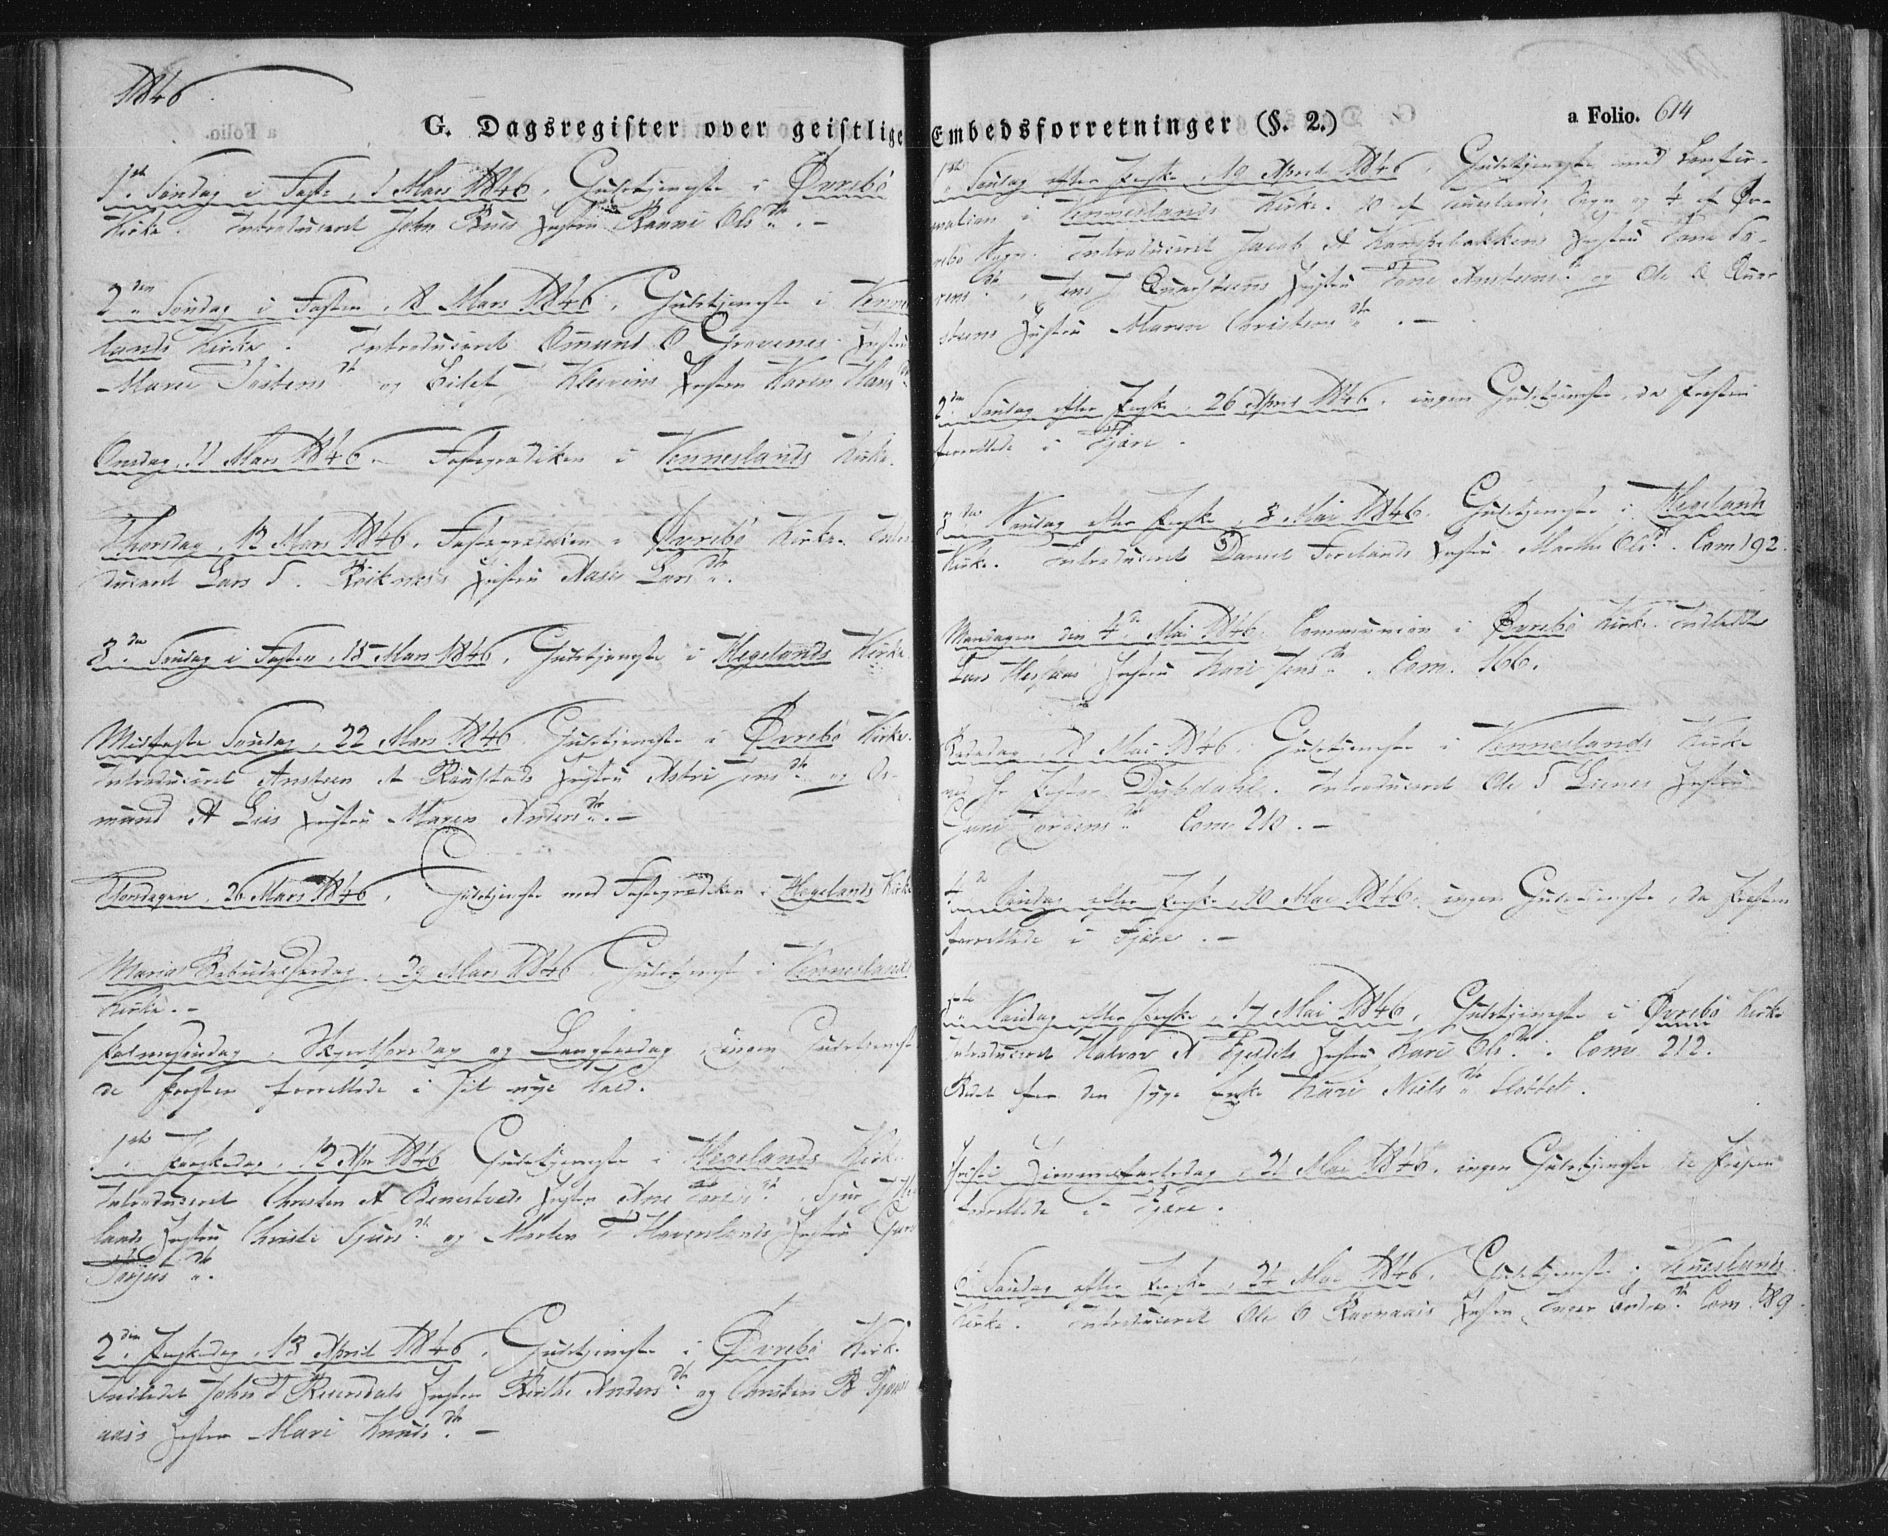 1846
G. Dagsregister over geistlige Embedsforretninger (§. 2.)
a Folio. 614
1ste Søndag i Faste, 1 Mars 1846, Gudstjeneste i Øvrebö
Kirke. Introduceret John Hustru Ols dtr. –
2den Søndag i Fasten, 8 Mars 1846, Gudstjeneste i Vennes
lands Kirke. Introduceret Omund O Grovenes Hustru
Maren dtr og Hustru Karen Hans
Onsdag 11 Mars 1846 – Fasteprædiken i Venneslands Kirke.
Thorsdag, 12 Mars 1846, Fasteprædiken i Øvrebö Kirke. Intro
duceret Lars Hustru Aase Lars dtr.
3die Søndag i Fasten, 15 Mars 1846, Gudstjeneste i Hegelands Kirke
Midfaste Søndag, 22 Mars 1846 Gudstjeneste i Øvrebö Kirke.
Introduceret Ansteen A Hustru Astri Jens dtr og Os-
mund A Lies Hustru Maren Anders dtr. –
Torsdagen, 26 Mars 1846, Gudstjeneste med Fasteprædiken i Hegelands Kirke
Mariæ Bebudelsesdag, 29 Mars 1846 Gudstjeneste i Venneslands
Kirke. –
Palmesøndag, Skjertorsdag og Langfredag ingen Gudstjeneste
da Præsten forrettede i sit nye Kald.
1ste Paaskedag, 12 Apr 1846 Gudstjeneste i Hegelands Kirke
Introduceret Christen A Hustru Ane dtr, Sjur
lands Hustru Christi Sjurs dtr og Morten T Hustru Guro
Torjus dtr.
2den Paaskedag, 13 April 1846, Gudstjeneste i Øvrebö Kirke.
Indledet John T Hustru Berthe Anders dtr og Christen B
aas's Hustru Mari Knuds dtr. –
1ste Søndag efter Paaske, 19 April 1846, Gudstjeneste med Confir-
mation i Venneslands Kirke. 10 af Venneslands Sogn og 4 af Øv-
rebö Sogn. Introduceret Jacob A Hustru Tone To-
dtr, Jens J Hustru Tone Ansteens dtr og Ole O
Hustru Maren Christens dtr. –
2den Søndag efter Paaske, 26 April 1846, ingen Gudstjeneste, da Præsten
forrettede i Fjære.
3die Søndag efter Paaske, 3 Mai 1846. Gudstjeneste i Hegelands
Kirke. Introduceret Daniel Hustru Marthe Ols dtr. Com 192.
Mandagen den 4de Mai 1846. Communion i Øvrebö Kirke. Indledet
Lars Hustru Kari Jens dtr. Com. 166.
Bededag 8 Mai 1846 Gudstjeneste i Venneslands Kirke
ved Hr Pastor Dybdahl. Introduceret Ole T Hustru
dtr Com 210. –
4de Søndag efter Paaske, 10 Mai 1846. ingen Gudstjeneste, da Præsten
forrettede i Fjære. –
5te Søndag efter Paaske, 17 Mai 1846, Gudstjeneste i Øvrebö Kirke
Introduceret Halvor A Fjeldets Hustru Kari Ols dtr. Com 212.
Bedet for den syge Enke Kari Niels dtr
Christi Himmelfartsdag, 21 Mai 1846. ingen Gudstjeneste da Præsten
forrettede i Fjære.
6te Søndag efter Paaske, 24 Mai 1846, Gudstjeneste i Venneslands
Kirke. Introduceret Ole O Ravnaas's Hustru dtr Com 189.